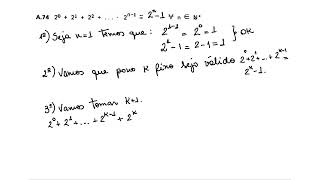 A.74 2⁰ + 2¹ + 2² + ..... 2ⁿ⁻¹ = 2ⁿ-1 ∀ n ∈ N*.
1º) Seja n=1 Temos que: 2¹⁻¹ = 2⁰ = 1 } OK
2¹-1 = 2-1 = 1
2º) Vamos que para K fixo seja válido 2⁰+2¹+...+2ᴷ⁻¹ =
2ᴷ-1.
3º) Vamos Tomar K+1.
2⁰ + 2¹ + ... + 2ᴷ⁻¹ + 2ᴷ